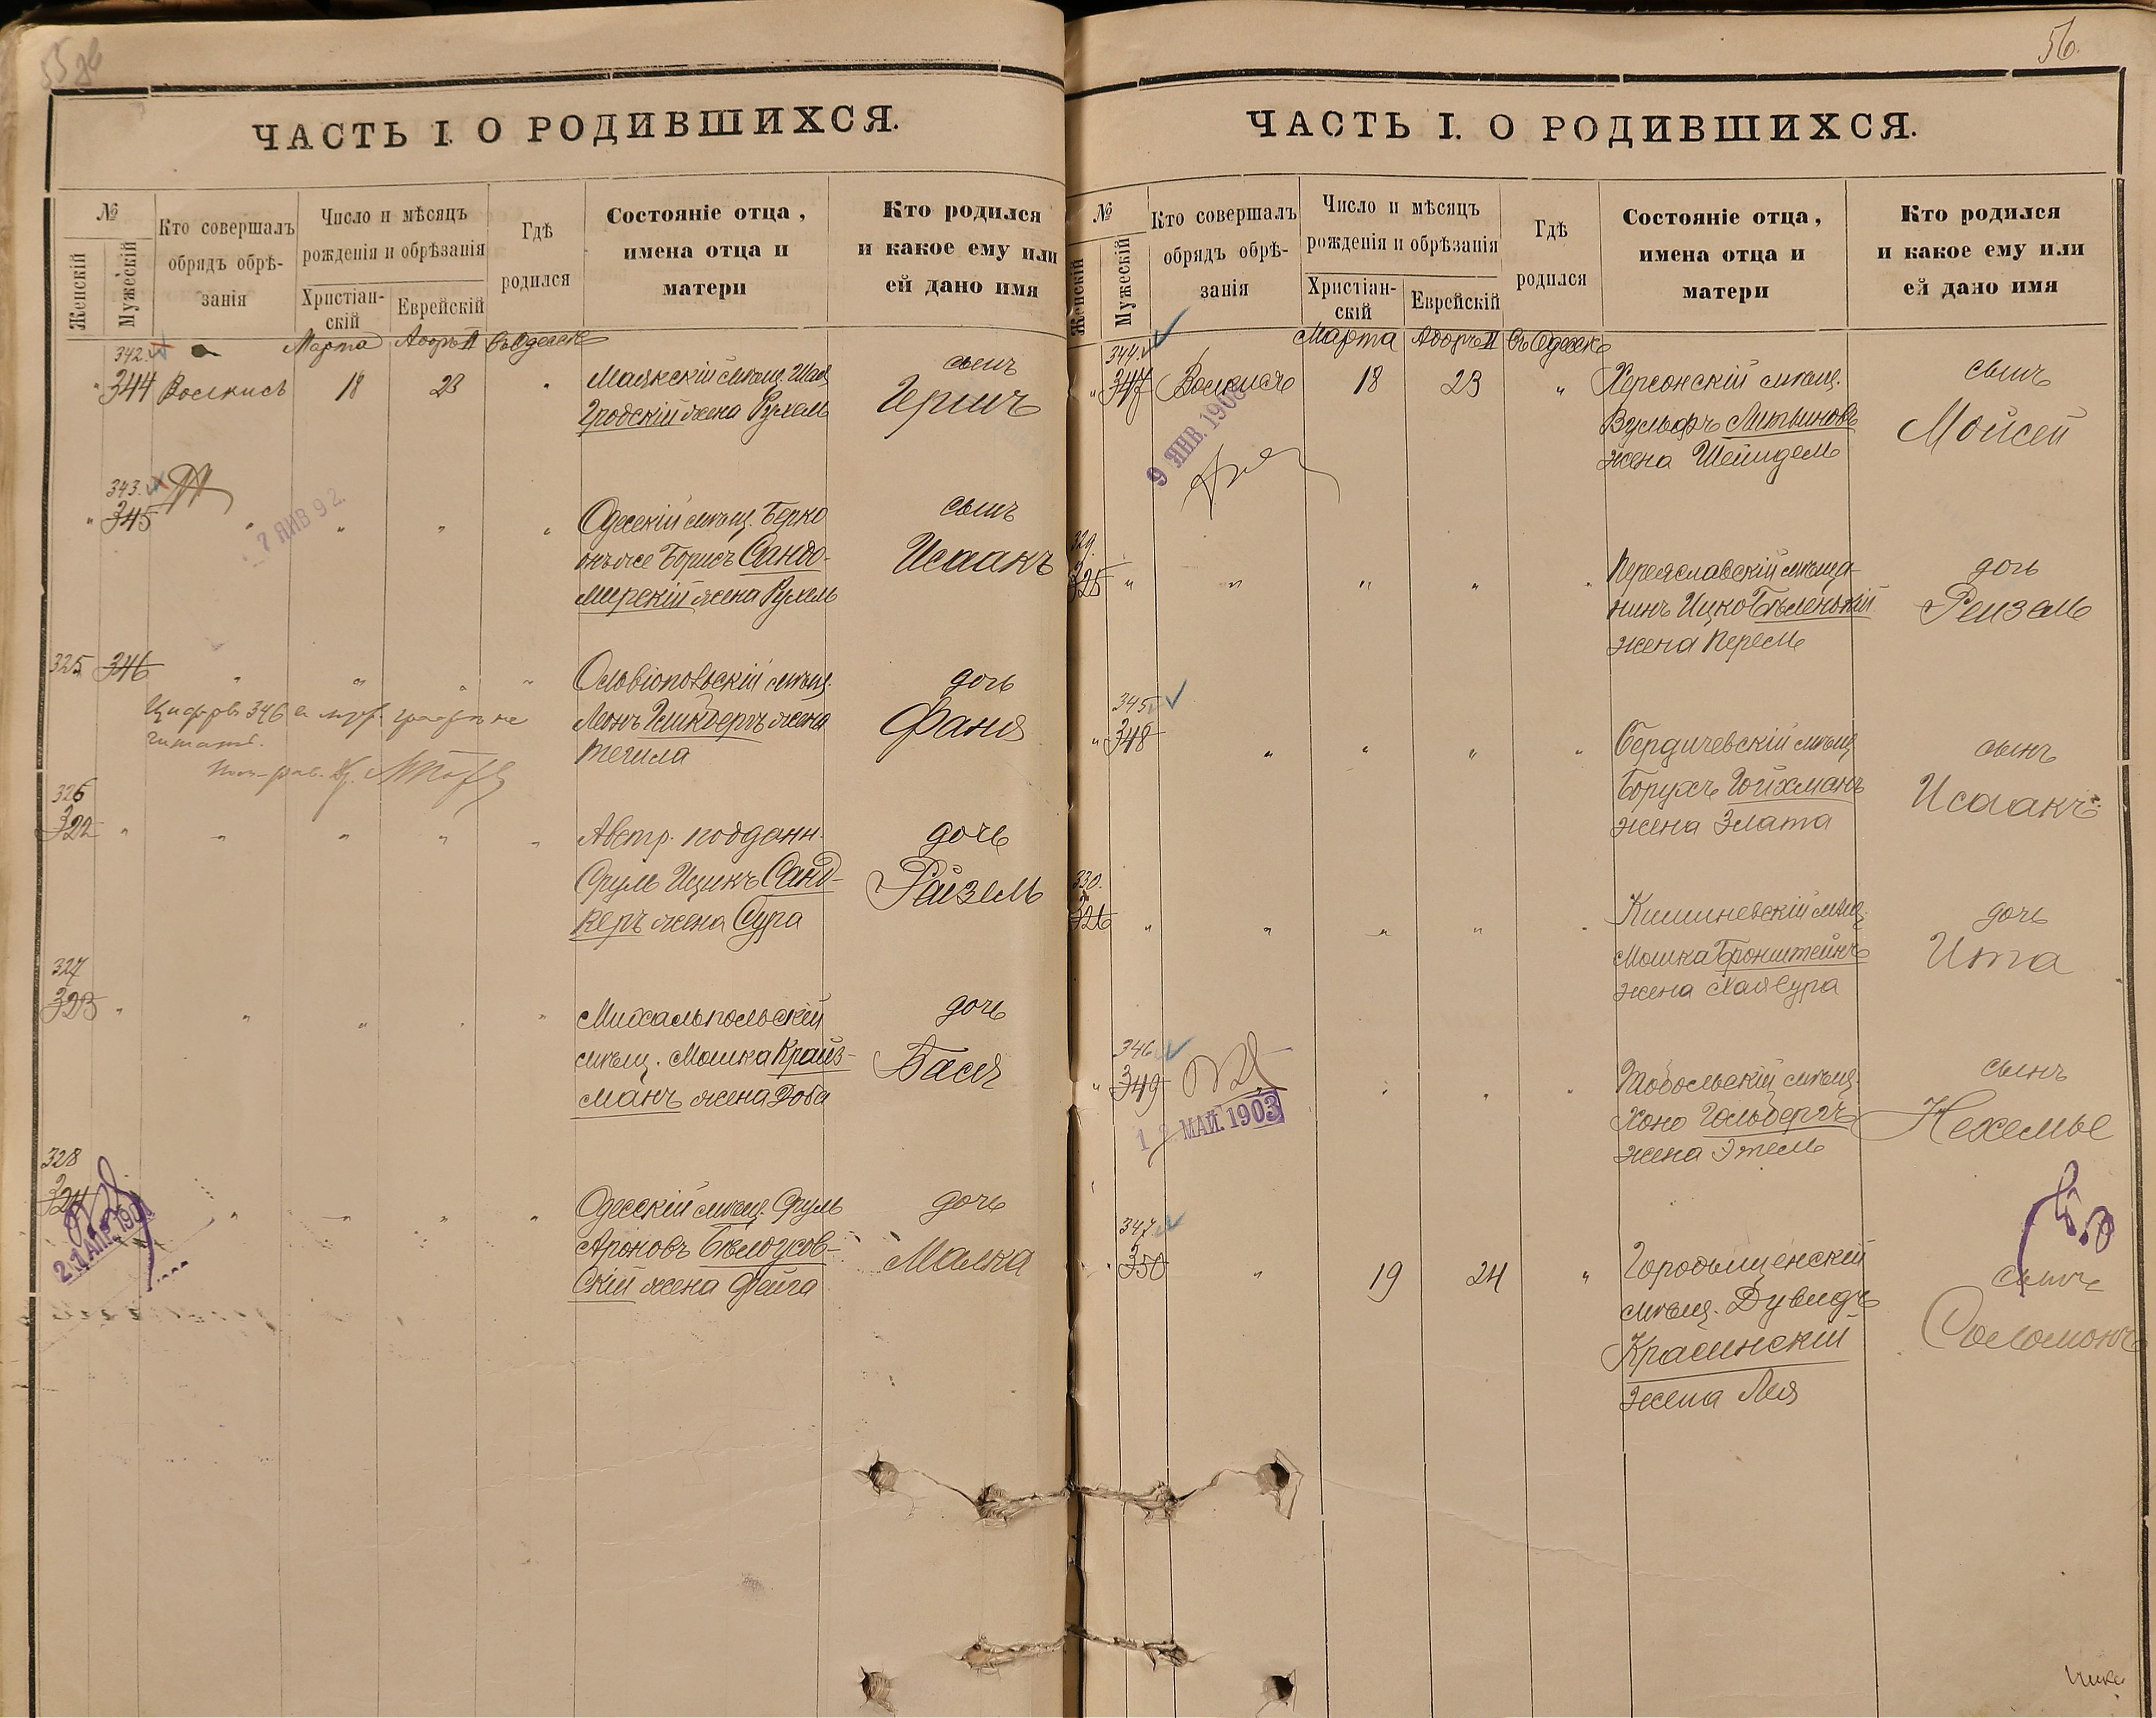 55 об
ЧАСТЬ I. О РОДИВШИХСЯ.
№
Женскій
Мужескій
Кто совершалъ
обрядъ обрѣ-
занія
Число и мѣсяцъ
рожденія и обрѣзанія
Христіан-
скій
Еврейскій
Гдѣ
родился
Состояніе отца,
имена отца и
матери
Кто родился
и какое ему или
ей дано имя
Марта Адоръ II Въ Одессѣ
342.
" 344 Волкисъ 18 23 "
Маякскій мѣщ.
Гродскій жена Рухель
сынъ
Гершъ
343.
" 345 " " " "
7 ЯНВ 92.
Одесскій мѣщ. Берко
онъ же Борисъ Сандо-
мирскій жена Рухель
сынъ
Исаакъ
325 346 " " " "
Цифръ 346 въ муж. графѣ не
читать.
Овидіопольскій мѣщ.
жена
дочь
Фаня
326
322 " " " " "
Австр. подданн.
Сруль Ицикъ Санд-
керъ жена Сура
дочь
Рейзель
327
323 " " " " "
Михальпольскій
мѣщ. Мошка Крайз-
манъ жена Доба
дочь
Бася
328
324 " " " "
21 АПР. 190
Одесскій мѣщ. Сруль
Ароновъ Бѣлоусов-
скій жена Фейга
дочь
Малка
56.
ЧАСТЬ I. О РОДИВШИХСЯ.
№
Женскій
Мужескій
Кто совершалъ
обрядъ обрѣ-
занія
Число и мѣсяцъ
рожденія и обрѣзанія
Христіан-
скій
Еврейскій
Гдѣ
родился
Состояніе отца,
имена отца и
матери
Кто родился
и какое ему или
ей дано имя
Марта Адоръ II Въ Одессѣ
344.
" 347 Волкисъ 18 23 "
9 ЯНВ. 190
Херсонскій мѣщ.
Вульфъ Литвиновъ
жена Шейндель
сынъ
Мойсей
329.
325 " " " " "
Переяславскій мѣща-
нинъ Ицко Бѣленькій
жена Перель
дочь
Рейзель
345
" 348 " " " "
Бердичевскій мѣщ.
Борухъ Гойхманъ
жена Злата
сынъ
Исаакъ
330.
326 " " " " "
Кишиневскій мѣщ.
Мошка Бронштейнъ
жена Хая Сура
дочь
Ита
346
" 349 " " "
МАЙ. 1903
мѣщ.
Хоно Гольбергъ
жена Этель
сынъ
Нехемье
347.
" 350 " 19 24 "
Городищенскій
мѣщ. Дувидъ
Красинскій
жена Лея
сынъ
Соломонъ